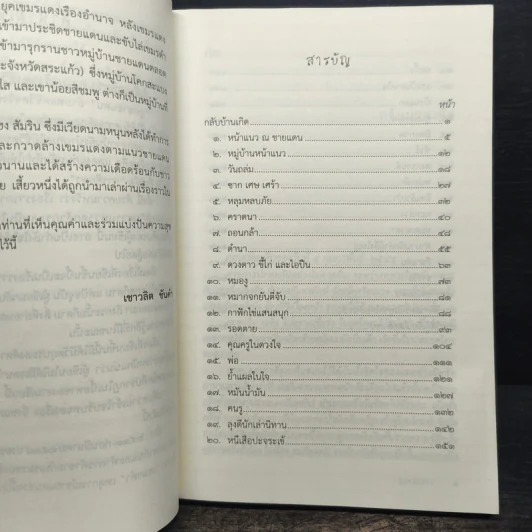 ยุคเขมรแดงเรืองอำนาจ หลังเขมรแดง
เข้ามาประชิดชายแดนและขับไล่เขมรดำ
เข้ามารุกรานชาวหมู่บ้านชายแดนตลอด
จังหวัดสระแก้ว) ซึ่งหมู่บ้านโคกสะแบง
ใส และเขาน้อยสีชมพู ต่างก็เป็นหมู่บ้านที่
สัมริน ซึ่งมีเวียดนามหนุนหลังได้ทำการ
และกวาดล้างเขมรแดงตามแนวชายแดน
นานและได้สร้างความเดือดร้อนกับชาว
เสี้ยวหนึ่งได้ถูกนำมาเล่าผ่านเรื่องราวใน
ท่านที่เห็นคุณค่าและร่วมแบ่งปันความสุข
ไว้นี้
เชาวลิต ขันคำ
สารบัญ
หน้า
กลับบ้านเกิด ๑
๑. หน้าแนว ณ ชายแดน ๕
๒. หมู่บ้านหน้าแนว ๑๒
๓. วันถล่ม ๑๙
๔. ซาก เศษ เศร้า ๒๗
๕. หลุมหลบภัย ๓๓
๖. คราดนา ๔๐
๗. ถอนกล้า ๔๘
๘. ดำนา ๕๕
๙. ดวงดาว ขี้ไก่ และไอปืน ๖๓
๑๐. หมองู ๗๓
๑๑. หมากจกยันตีจับ ๘๑
๑๒. กาฟักไข่แสนสนุก ๘๘
๑๓. รอดตาย ๙๓
๑๔. คุณครูในดวงใจ ๑๐๔
๑๕. พ่อ ๑๑๑
๑๖. ย้ำแผลในใจ ๑๒๑
๑๗. หมันน้ำมัน ๑๒๗
๑๘. คนรู ๑๓๒
๑๙. ลุงดีนักเล่านิทาน ๑๔๒
๒๐. หนีเสือปะจระเข้ ๑๕๑